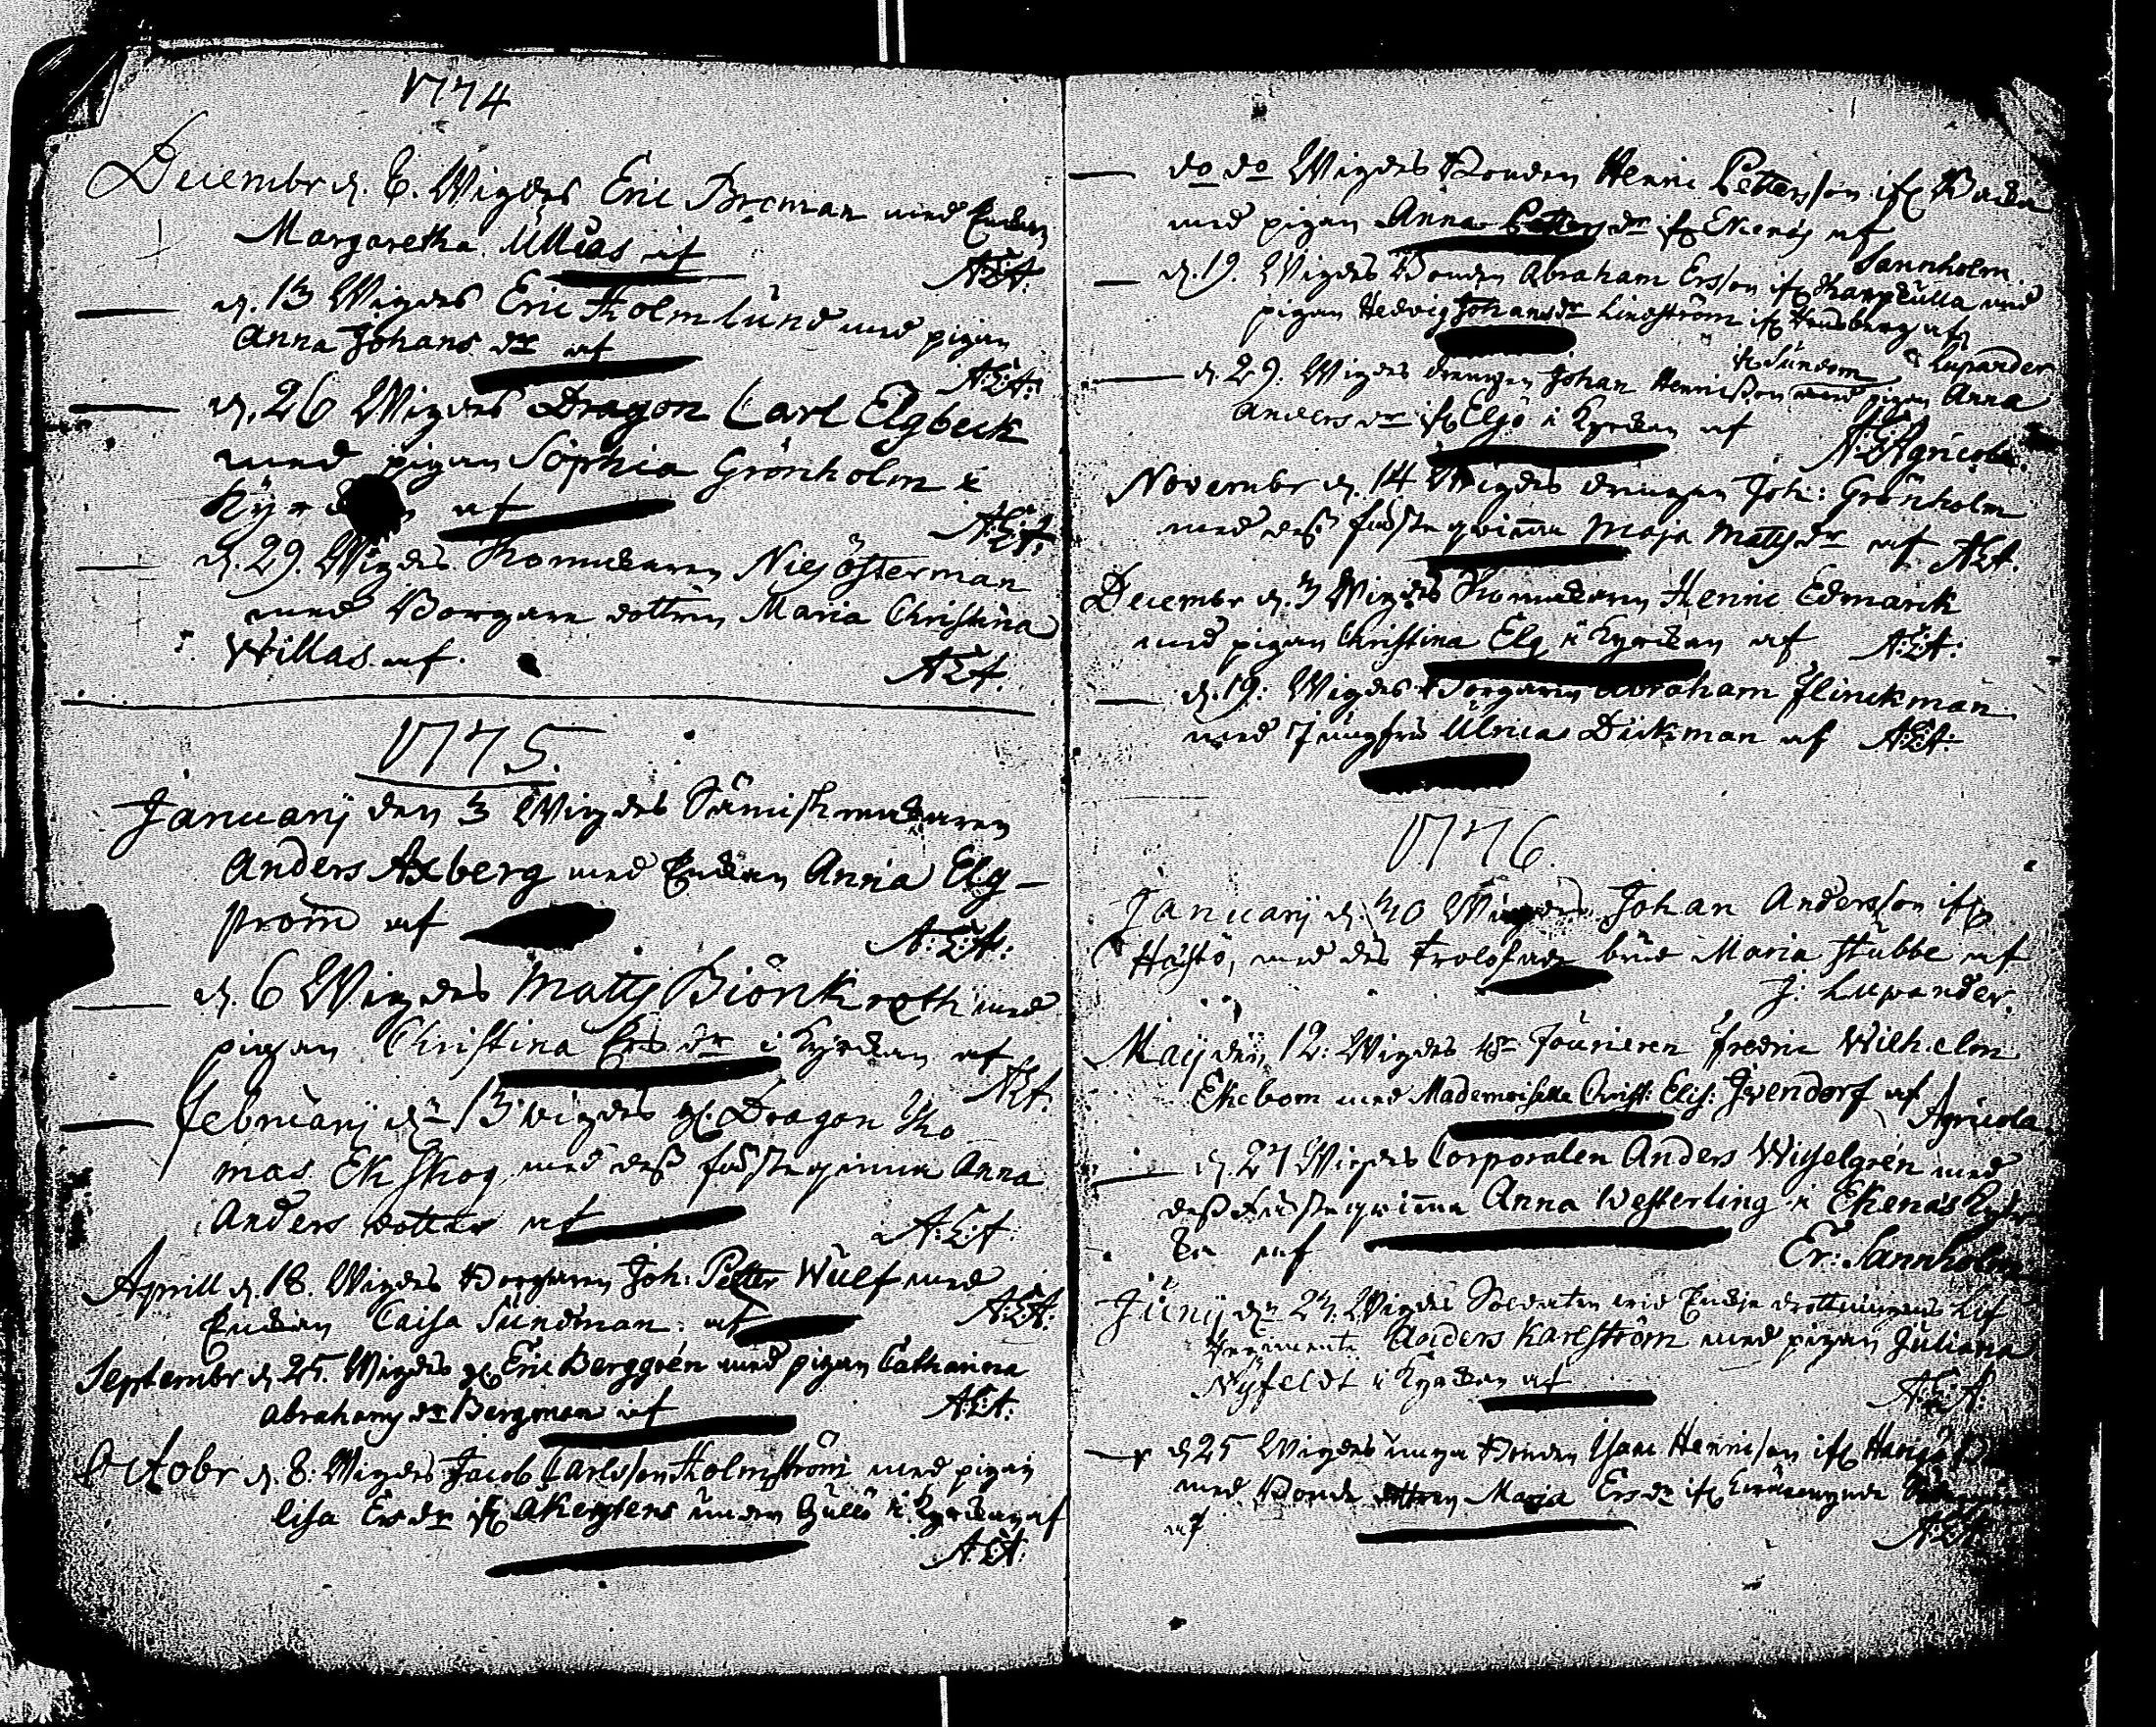 1774
Decembr d. 6. Wigdes Eric Broman med Enkan
Margaretha Ullias af
A:E:A:
d. 13 Wigdes Eric Holmlund med pigan
Anna Johans dr af
A:E:A:
d. 26 Wigdes Dragon Carl Elgbeck
med pigan Sophia Grönholm i
Kyrkan af
A:E:A:
d. 29. Wigdes Skomakaren Nils Österman
med Borgare dottren Maria Christina
Willas af
AEA.
1775.
Januarij den 3 Wigdes Sämiskmakaren
Anders Axberg med Enkan Anna Elg-
ström af
A:E:A:
d. 6 Wigdes Matts Biönkroth med
pigan Christina Ers dr i Kyrkan af
AEA.
Februarij d. 13 wigdes Dragon Tho
mas Ekskog med dess fästeqvinna Anna
Anders dotter af
A:E:A:
Aprill d. 18. Wigdes Borgaren Joh: Petter Wulf med
Enkan Caisa Sundman af
A:E:A:
Septembr d. 25. Wigdes Eric Berggrén med pigan Catharina
Abrahams dr Bergman af
A:E:A:
Octobr d. 8. Wigdes Jacob Carlsson Holmström med pigan
Lisa Ers dr ifr Åkerstens under Gullö i Kyrkan af
A:E:A:
do do Wigdes Bonden Henric Pettersson ifr Backa
med pigan Anna Petters dr ifr Ekenäs af
Sannholm
d. 19. Wigdes Bonden Abraham Ersson ifr Harpkulla med
pigan Hedvig Johans dr Lindström ifr af
Lupander
d. 29. Wigdes drengen Johan Henricsson ifr Sundom med pigan Anna
Anders dr ifr Elgö i Kyrkan af
A:E:Agricola.
Novembr d. 14 Wigdes drengen Joh: Grönholm
med dess fästeqvinna Maja Matts dr af AEA.
Decembr d. 3 Wigdes Skomakaren Henric Edmarck
med pigan Christina Elg i Kyrkan af A:E:A:
d. 19. Wigdes Borgaren Abraham Flinckman
med Jungfru Ulrica Dickman af A:E:A:
1776.
Januarij d. 30 Wigdes Johan Andersson ifr
Hästö, med des trolofade brud Maria Stubbe af
J: Lupander.
Maij den 12. Wigdes Hr Fourieren Fredric Wilhelm
Ekebom med Mademoiselle Christ: Elis: Ivendorf af
Agricola
d. 27 Wigdes Corporalen Anders Wisselgren med
dess fästeqvinna Anna Westerling i Ekenäs Kyr
ka af
Er: Sannholm
Junij d. 23. Wigdes Soldaten wid Enkje drottningens Lif
Regemente Anders Karlström med pigan Juliana
Nyfeldt i Kyrkan af
A:E:A:
d 25 Wigdes unga Bonden Isaac Henricsson ifr
med Bonde dottren Maja Ers dr ifr
af
A:E:A: